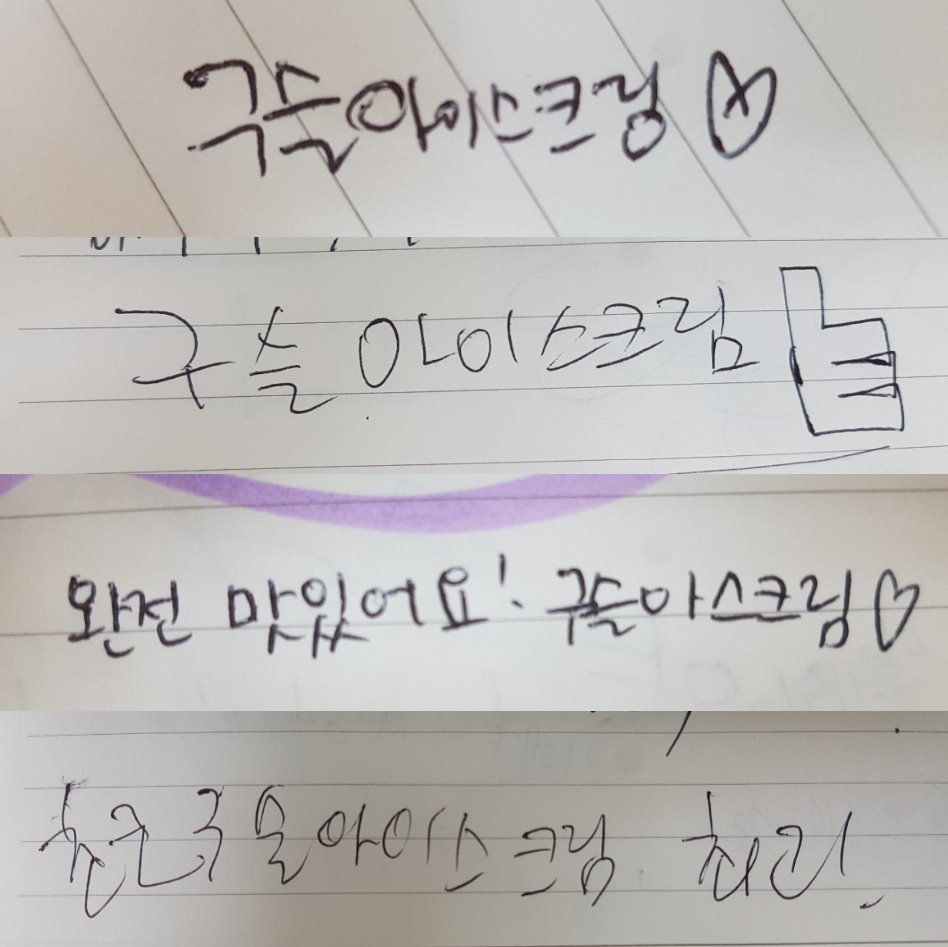 구슬아이스크림♡
구슬 아이스크림
완전 맛있어요! 구슬아스크림♡
구슬아이스크림 최고!